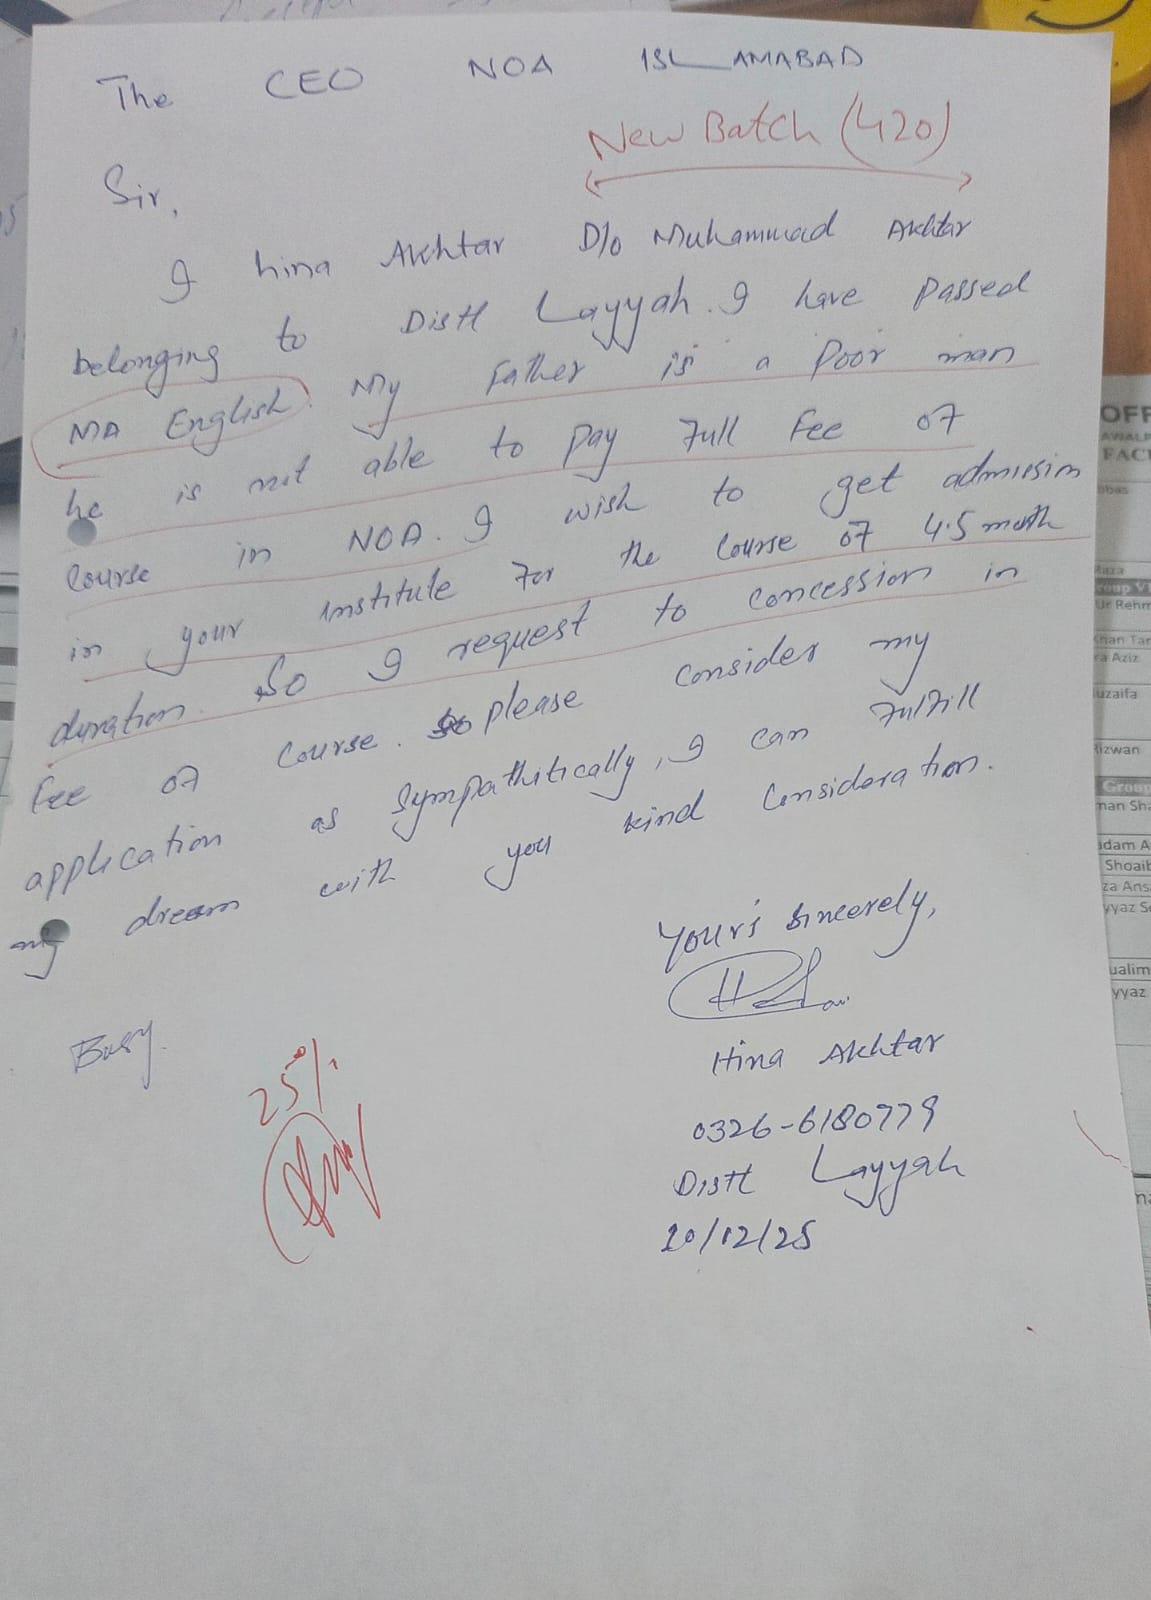 The CEO NOA ISLAMABAD
New Batch (420)
Sir,
I hina Akhtar D/o Muhammad Akhtar
belonging to Distt Layyah. I have passed
MA English. My Father is a Poor man
he is not able to pay full Fee of
Course in NOA. I wish to get admission
in your institute for the Course of 4.5 month
duration. So I request to concession in
fee of course. please consider my
application as sympathitically, I can fulfill
my dream with you kind Consideration.
Your's Sincerely,
Hina Akhtar
0326-6180779
Distt Layyah
20/12/25
25%
OFF
AWALP
FAC
bbas
Raza
roup VI
Ur Rehm
Khan Tar
ra Aziz
uzaifa
Rizwan
Group
man Sha
dam A
Shoaib
za Ans
yyaz S
ualim
yyaz